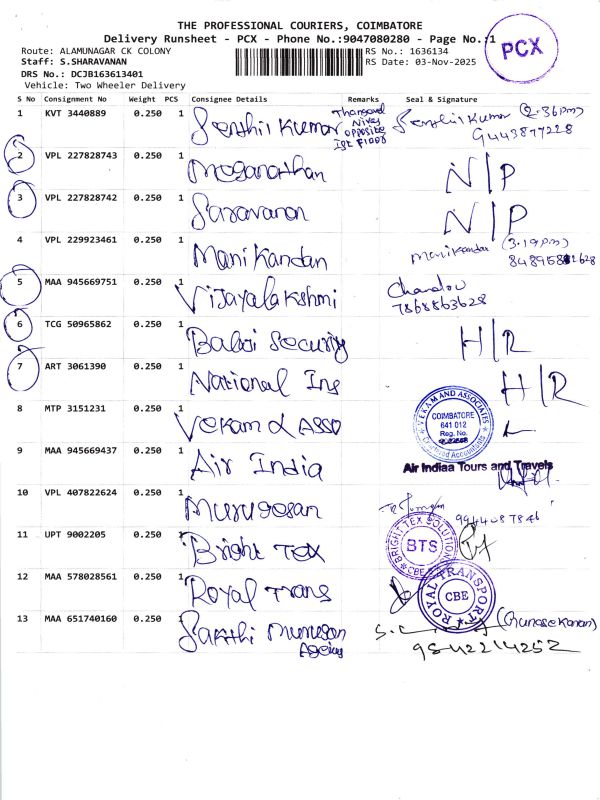 THE PROFESSIONAL COURIERS, COIMBATORE
Delivery Runsheet - PCX - Phone No.:9047080280 - Page No.:1
PCX
Route: ALAMUNAGAR CK COLONY
RS No.: 1636134
Staff: S.SHARAVANAN
RS Date: 03-Nov-2025
DRS No.: DCJB163613401
Vehicle: Two Wheeler Delivery
S No Consignment No Weight PCS Consignee Details Remarks Seal & Signature
1 KVT 3440889 0.250 1 Senthil Kumar opposite Senthil Kumar (2.36pm)
9443877228
2 VPL 227828743 0.250 1 Moganathan N/P
3 VPL 227828742 0.250 1 Saravanan N/P
4 VPL 229923461 0.250 1 Manikandan Manikandan (3.19pm)
5 MAA 945669751 0.250 1 Vijayalakshmi
7868863628
6 TCG 50965862 0.250 1 Balaji Security H/R
7 ART 3061390 0.250 1 National Ins H/R
8 MTP 3151231 0.250 1 Vekam & Asso
VEKAM AND ASSOCIATES
COIMBATORE
641 012
Reg. No.
Chartered Accountants
9 MAA 945669437 0.250 1 Air India
Air Indiaa Tours and Travels
10 VPL 407822624 0.250 1 Murugesan
9944087846
11 UPT 9002205 0.250 1 Bright Tex
BRIGHT TEX SOLUTIONS
BTS
CBE
12 MAA 578028561 0.250 1 Royal Trans
ROYAL TRANSPORT
CBE
13 MAA 651740160 0.250 1 Sakthi Murugan (Gunasekaran)
9842214252